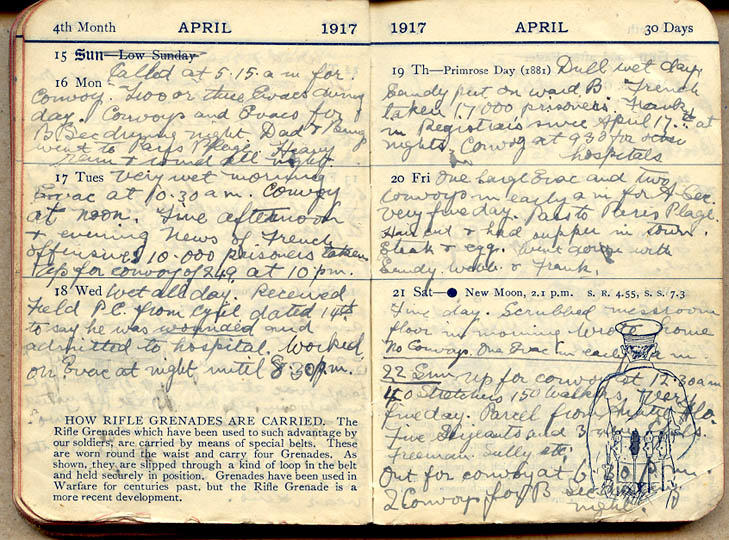 4th Month APRIL 1917
15 Sun—Low Sunday
Called at 5.15 a m for
16 Mon
Convoy. Two or three Evacs during
day. Convoys and Evacs for
B Sec during night. Dad &
went to Paris Plage. Heavy
rain & wind all night
17 Tues Very wet morning
Evac at 10.30 a m. Convoy
at noon. Fine afternoon
& evening News of French
offensive 10.000 prisoners taken
Up for convoy of 249 at 10 pm.
18 Wed Wet all day. Received
Field P.C. from Cyril dated 14th
to say he was wounded and
admitted to hospital. Worked
on Evac at night until 8.30 p.m.
HOW RIFLE GRENADES ARE CARRIED. The
Rifle Grenades which have been used to such advantage by
our soldiers, are carried by means of special belts. These
are worn round the waist and carry four Grenades. As
shown, they are slipped through a kind of loop in the belt
and held securely in position. Grenades have been used in
Warfare for centuries past, but the Rifle Grenade is a
more recent development.
1917 APRIL 30 Days
19 Th—Primrose Day (1881) Dull wet day.
Sandy put on ward B. French
taken 17000 prisoners. Frank
in Registrars since April 17th at
nights. Convoy at 9 30 for other
hospitals
20 Fri One large Evac and two
convoys in early a m for A Sec.
Very fine day. Pass to Paris Plage.
Hair cut & had supper in town.
Steak & egg. Went down with
Sandy. Webb & Frank.
21 Sat— New Moon, 2.1 p.m. S. R. 4.55, S. S. 7.3
Fine day. Scrubbed messroom
floor in morning Wrote home
No Convoys. One Evac in early a m
22 Sun Up for convoy at 12.30 a m
40 Stretchers 150 Walkers,
Fine day. Parcel from
Five Sergeants and 3
Freeman. Sully etc.
Out for convoy at 6 30 P. m.
2 Convoys for B sec
night.